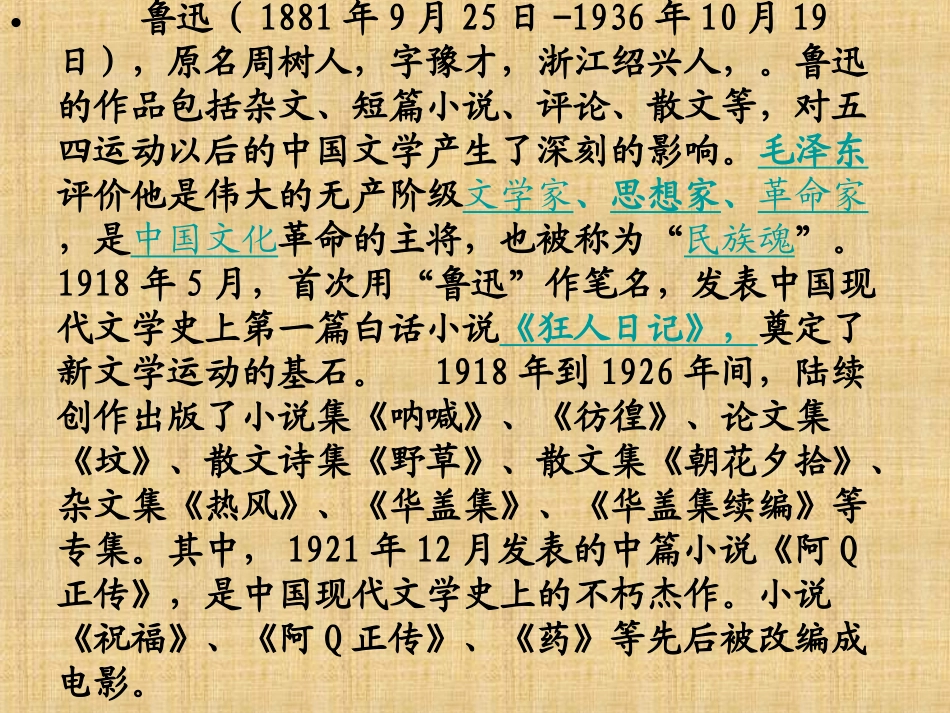 • 鲁迅（ 1881 年 9 月 25 日 –1936 年 10 月 19
日），原名周树人，字豫才，浙江绍兴人，。鲁迅
的作品包括杂文、短篇小说、评论、散文等，对五
四运动以后的中国文学产生了深刻的影响。毛泽东
评价他是伟大的无产阶级文学家、思想家、革命家
，是中国文化革命的主将，也被称为“民族魂”。
1918 年 5 月，首次用“鲁迅”作笔名，发表中国现
代文学史上第一篇白话小说《狂人日记》，奠定了
新文学运动的基石。 1918 年到 1926 年间，陆续
创作出版了小说集《呐喊》、《彷徨》、论文集
《坟》、散文诗集《野草》、散文集《朝花夕拾》、
杂文集《热风》、《华盖集》、《华盖集续编》等
专集。其中， 1921 年 12 月发表的中篇小说《阿 Q
正传》，是中国现代文学史上的不朽杰作。小说
《祝福》、《阿 Q 正传》、《药》等先后被改编成
电影。